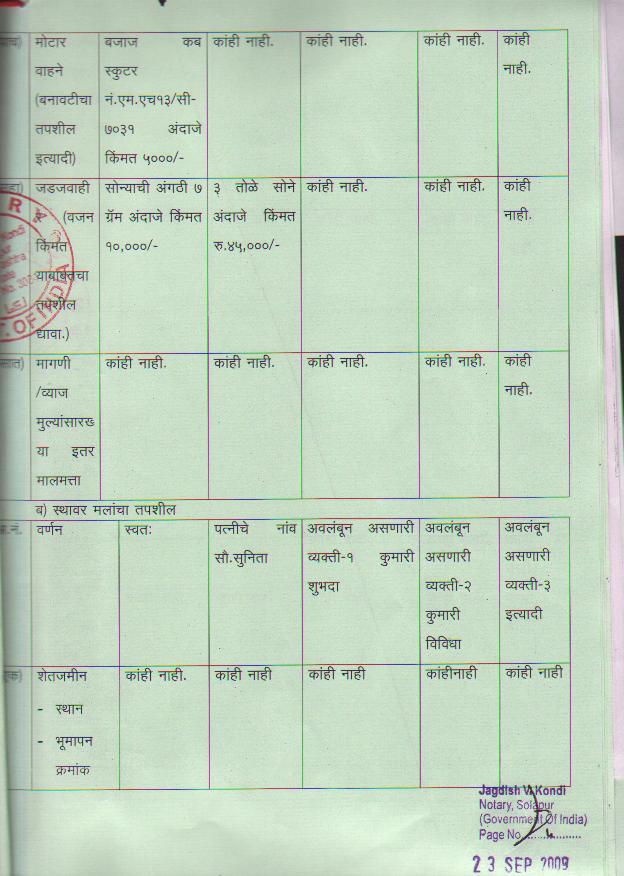 मोटार बजाज कब कांही नाही. कांही नाही. कांही नाही. कांही
वाहने स्कुटर नाही.
(बनावटीचा नं.एम.एच१३/सी-
तपशील ७०३१ अंदाजे
इत्यादी) किंमत ५०००/-
जडजवाही सोन्याची अंगठी ७ ३ तोळे सोने कांही नाही. कांही नाही. कांही
(वजन ग्रॅम अंदाजे किंमत अंदाजे किंमत नाही.
किंमत १०,०००/- रु.४५,०००/-
याबाबतचा
तपशील
द्यावा.)
मागणी कांही नाही. कांही नाही. कांही नाही. कांही नाही. कांही
/व्याज नाही.
मुल्यांसारख
या इतर
मालमत्ता
ब) स्थावर मलांचा तपशील
वर्णन स्वतः पत्नीचे नांव अवलंबून असणारी अवलंबून अवलंबून
सौ.सुनिता व्यक्ती-१ कुमारी असणारी असणारी
शुभदा व्यक्ती-२ व्यक्ती-३
कुमारी इत्यादी
विविधा
शेतजमीन कांही नाही. कांही नाही कांही नाही कांहीनाही कांही नाही
- स्थान
- भूमापन
क्रमांक
Jagdish V. Kondi
Notary, Solapur
(Government Of India)
Page No.
23 SEP 2009